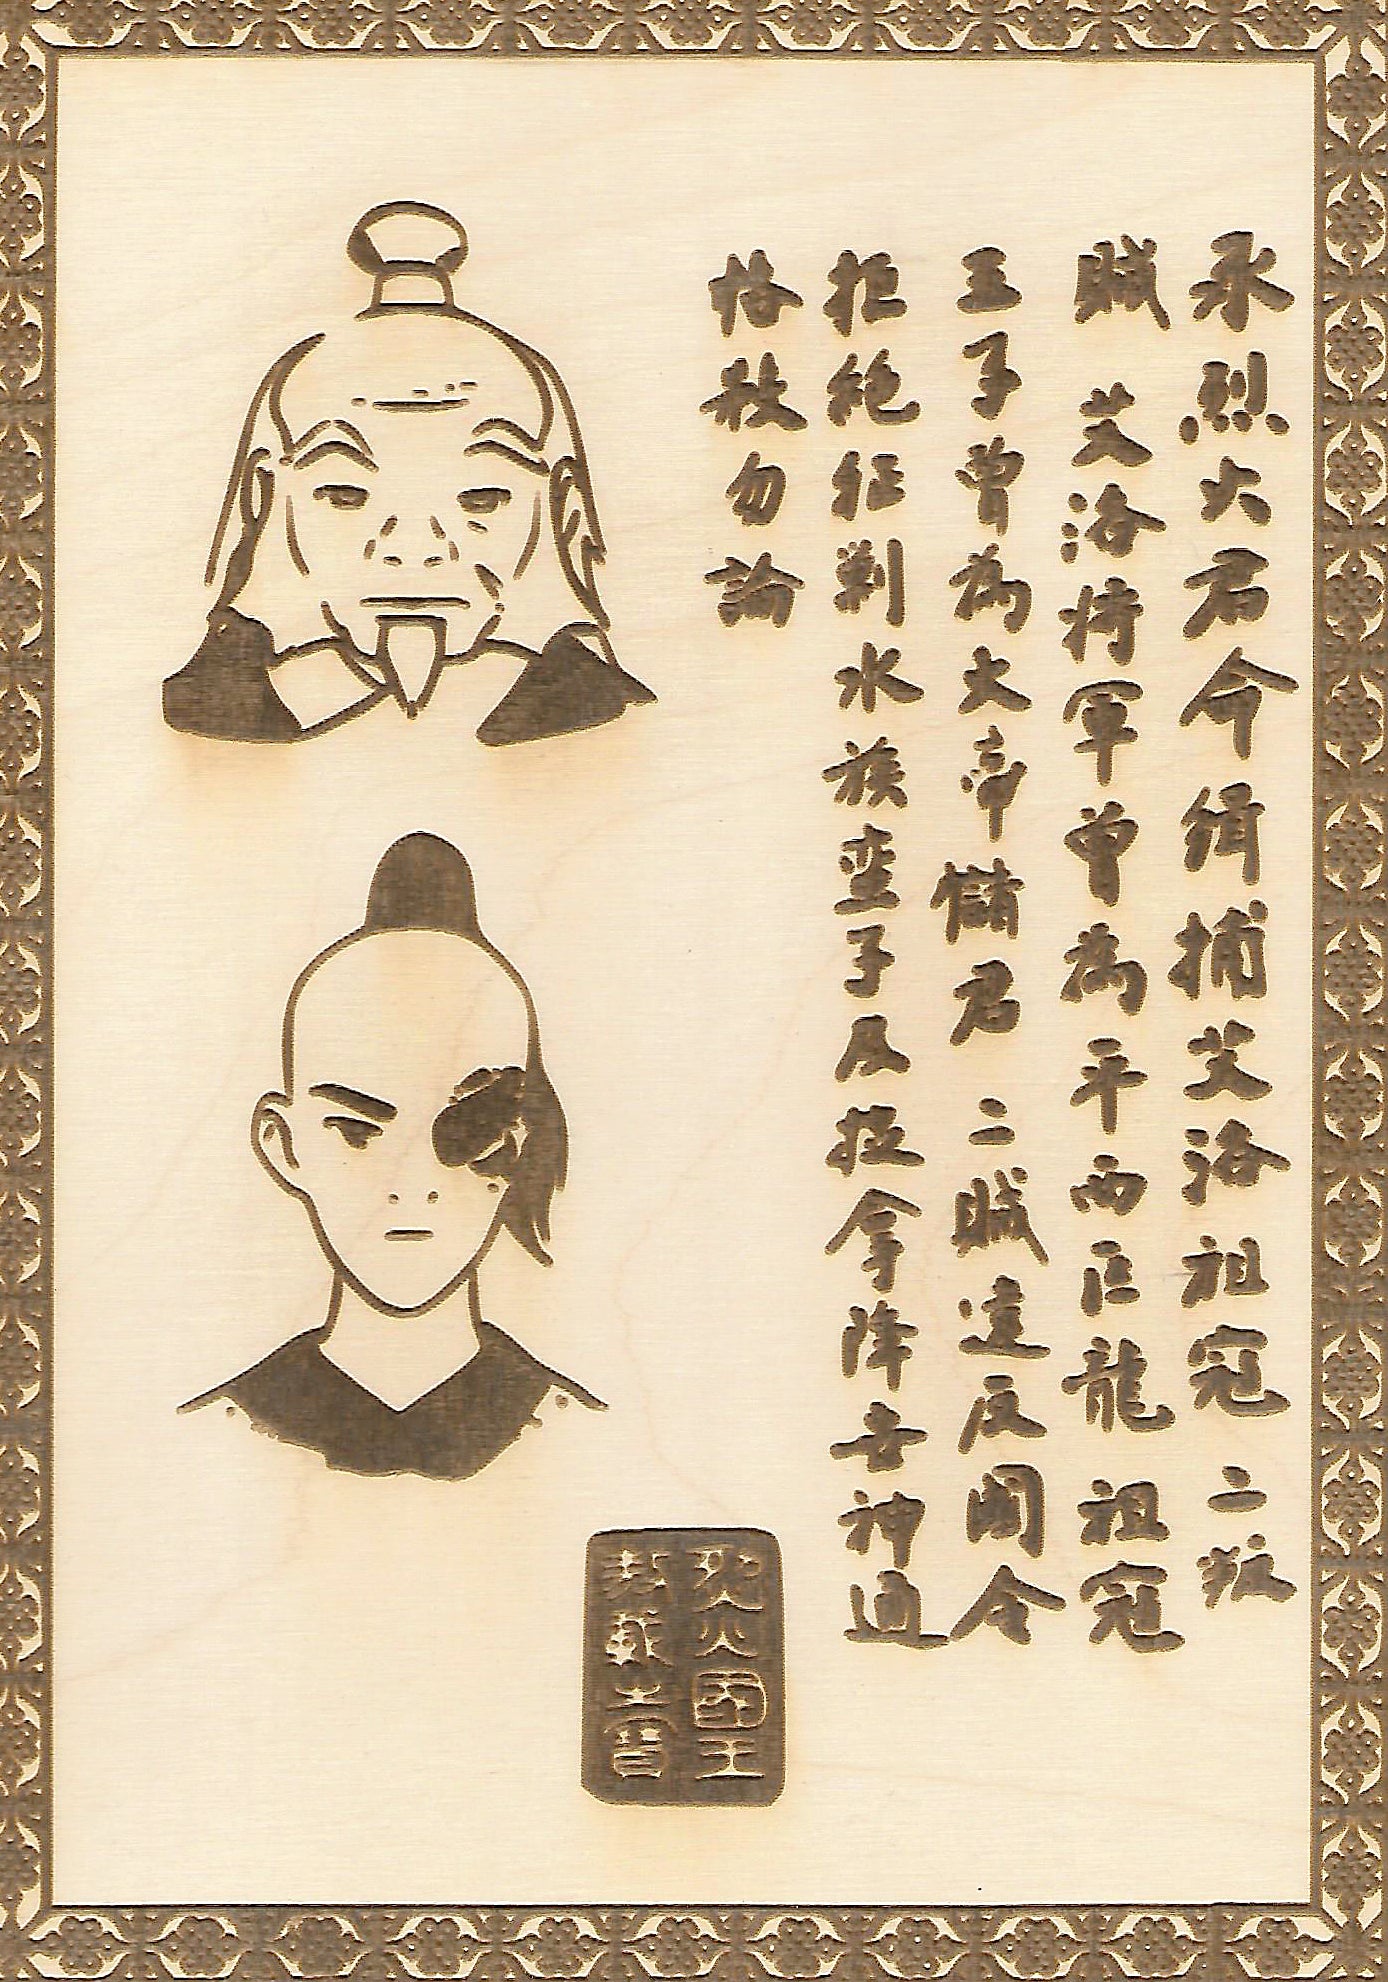 承烈火君令緝捕艾洛祖寇二叛
賊 艾洛將軍曾為平西巨龍 祖寇
王子曾為大帝儲君 二賊違反國令
拒絕征剿水族蛮子及拉拿降世神通
格殺勿論
烈火國王